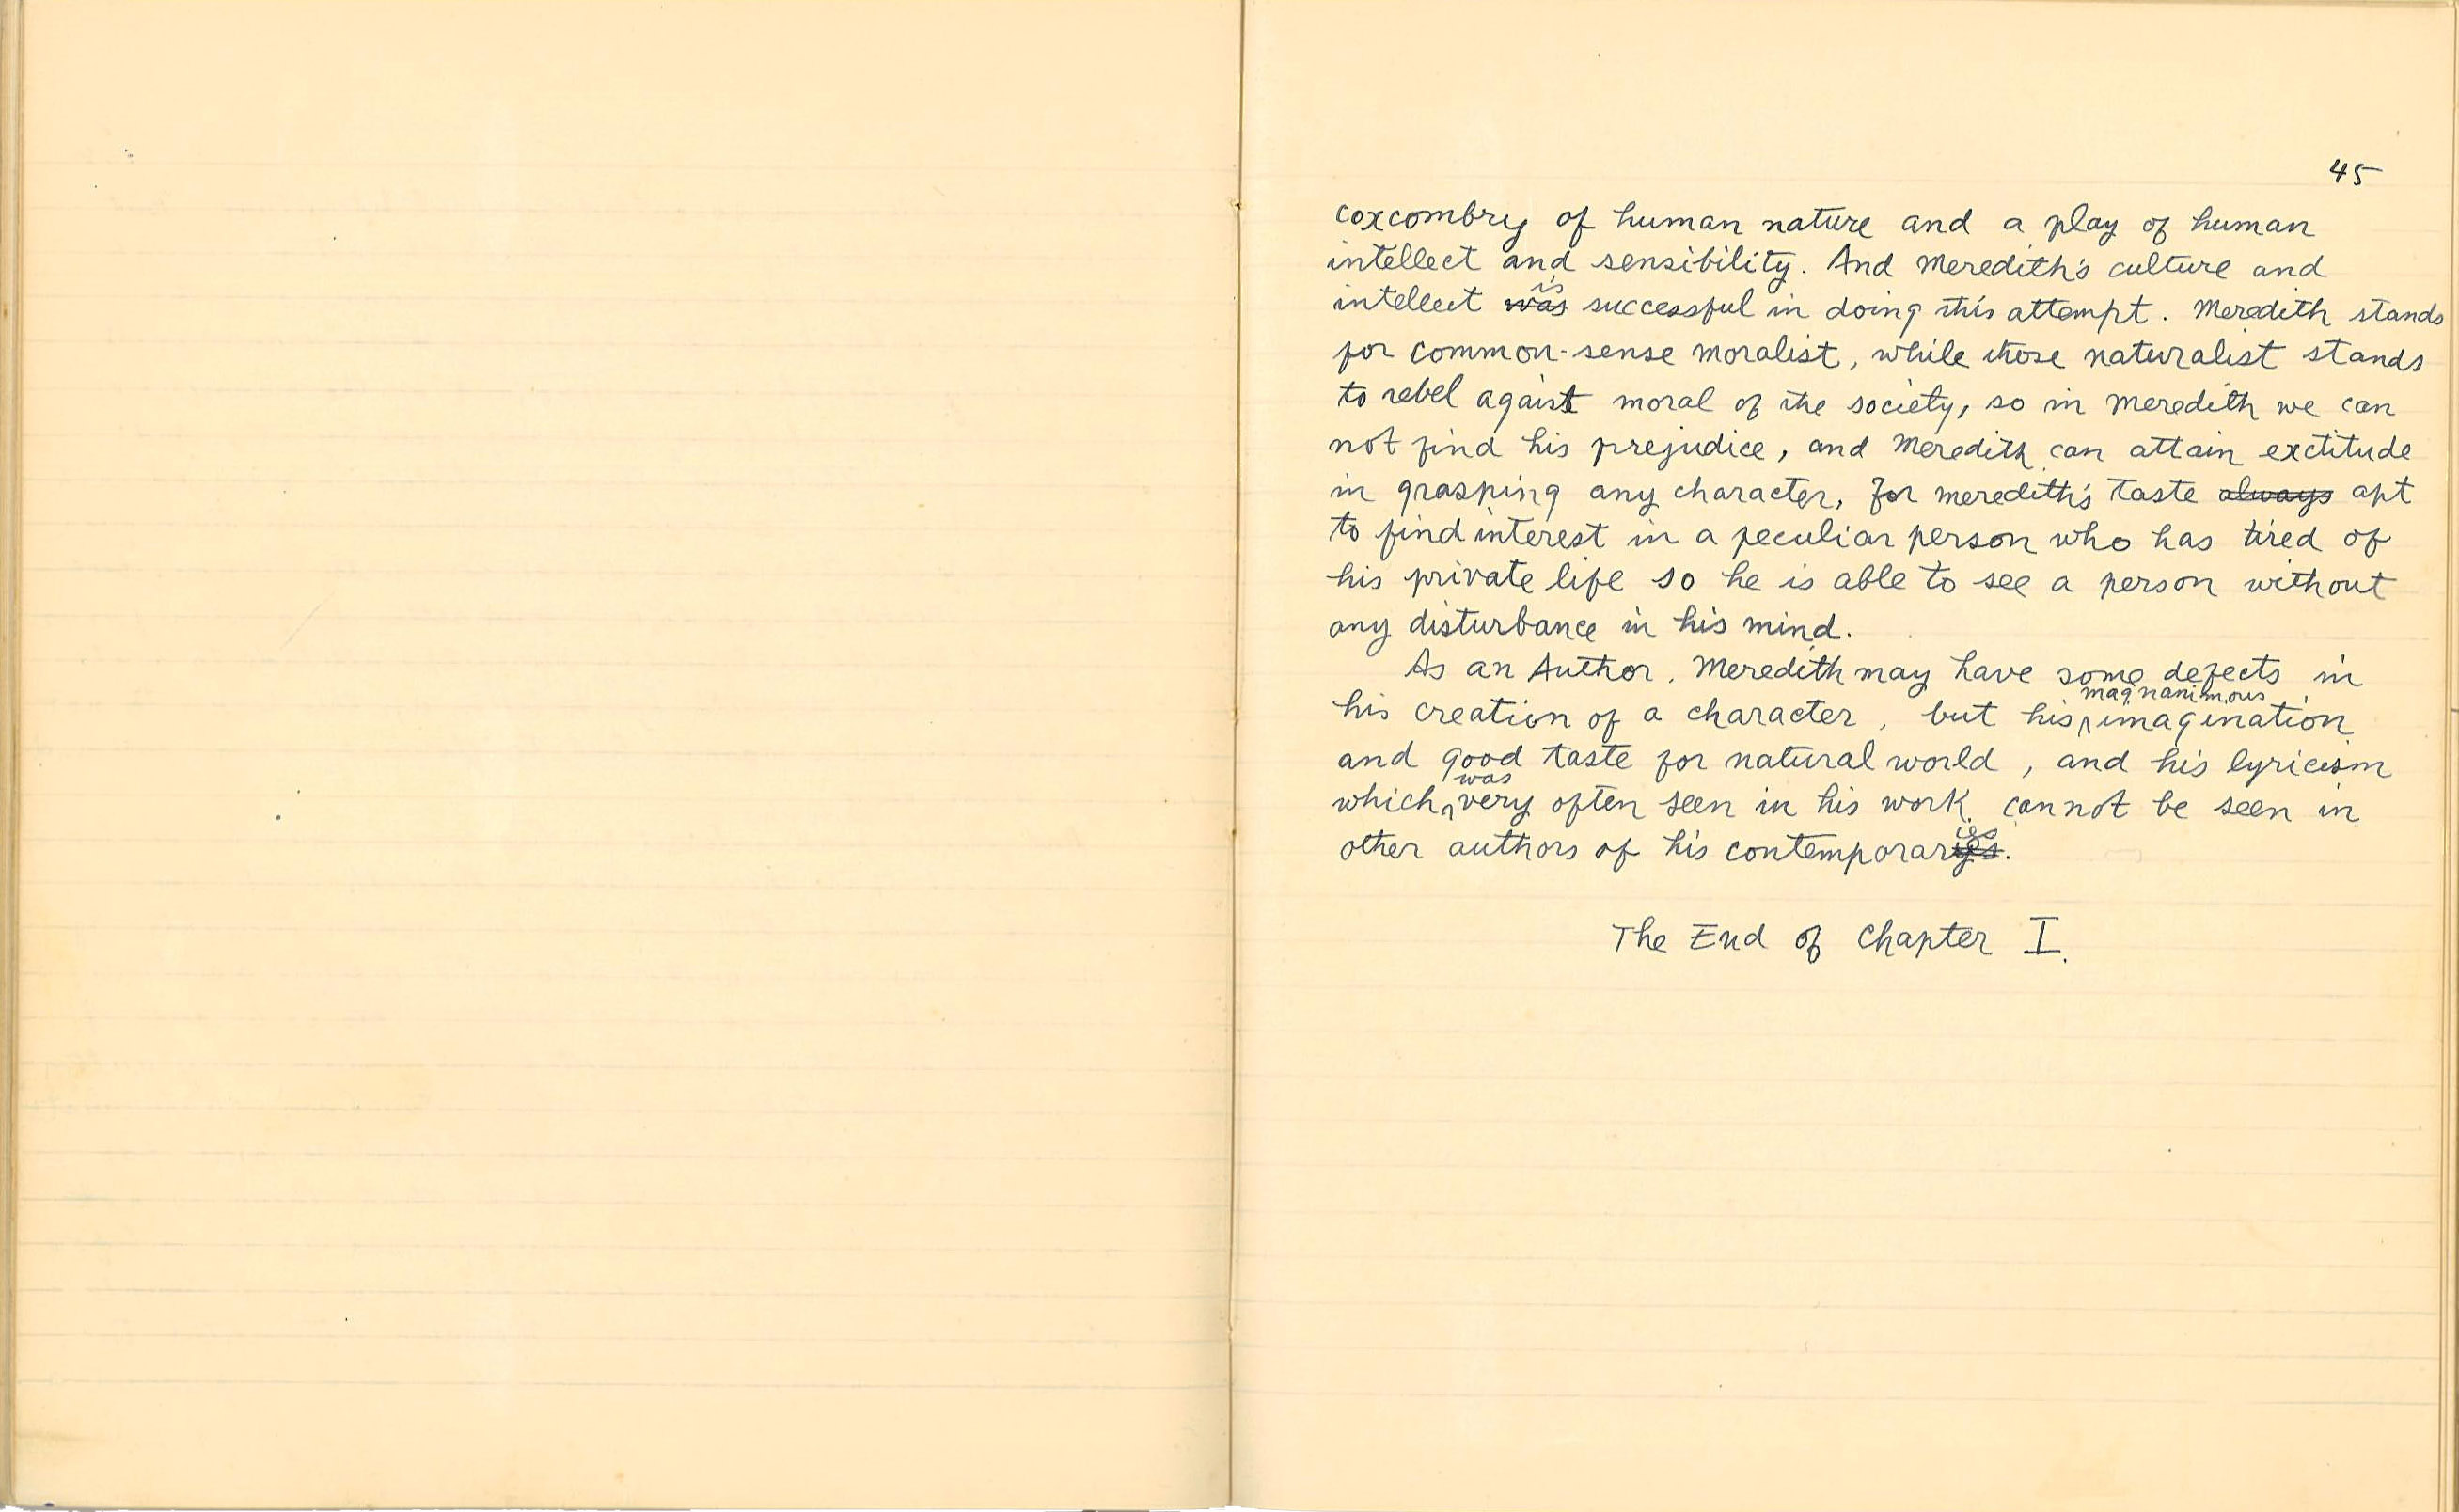 45
coxcombry of human nature and a play of human
intellect and sensibility. And Meredith's culture and
intellect ~~was~~ is successful in doing this attempt. Meredith stands
for common-sense moralist, while those naturalist stands
to rebel against moral of the society, so in Meredith we can
not find his prejudice, and Meredith can attain exctitude
in grasping any character, For meredith's taste ~~always~~ apt
to find interest in a peculiar person who has tired of
his private life so he is able to see a person without
any disturbance in his mind.
As an Author, Meredith may have some defects in
his creation of a character, but his magnanimous imagination
and good taste for natural world, and his lyricism
which was very often seen in his work, cannot be seen in
other authors of his contemporaries.
The End of Chapter I.